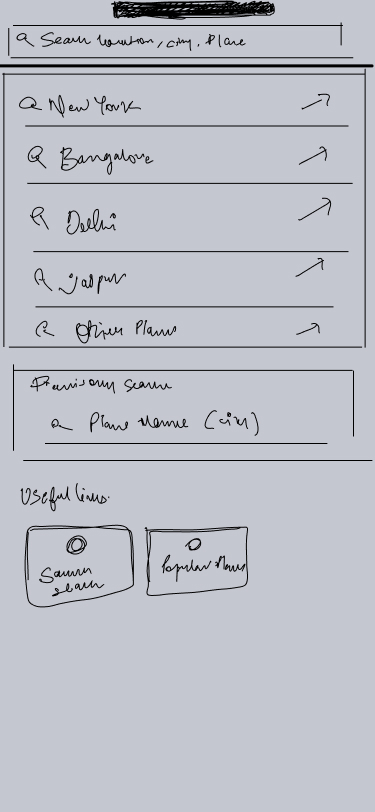 Search location, city, Place
New York
Bangalore
Delhi
Jaipur
Other Places
Previously search
Place Name (city)
Useful links.
search
Popular Places